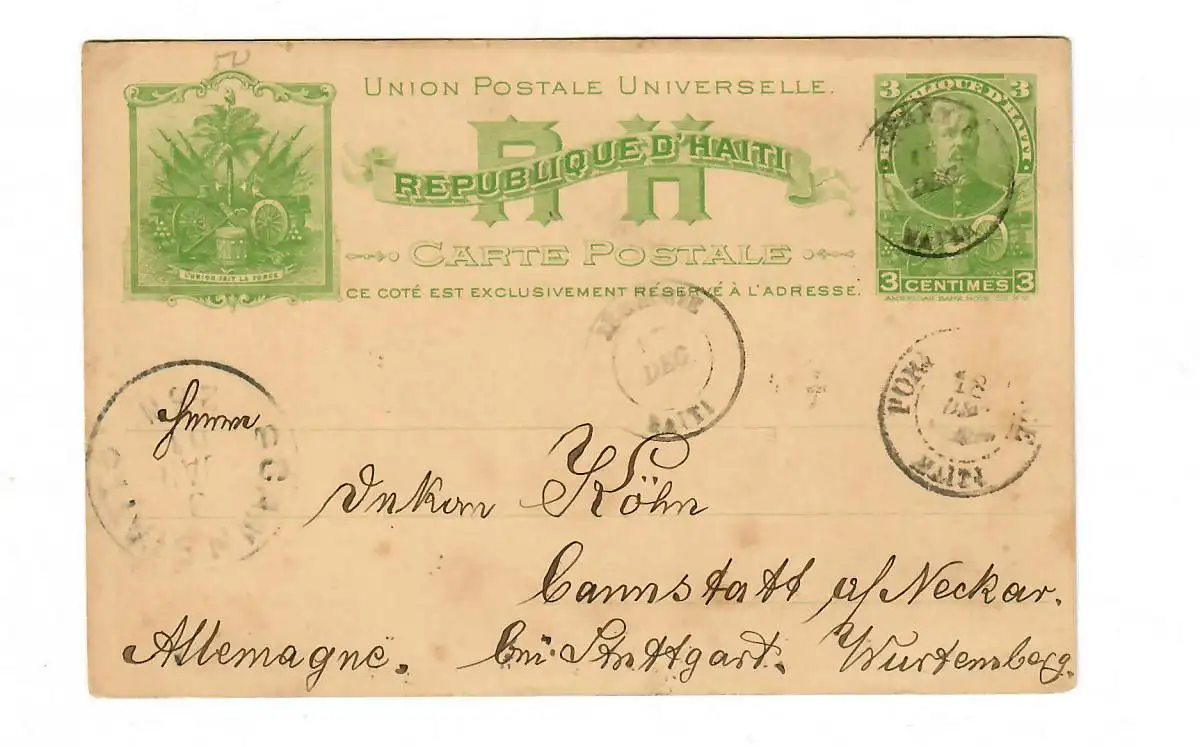 UNION POSTALE UNIVERSELLE.
RH
REPUBLIQUE D'HAITI
CARTE POSTALE
CE COTÉ EST EXCLUSIVEMENT RÉSERVÉ À L'ADRESSE.
L'UNION FAIT LA FORCE
3 3
REPUBLIQUE D'HAITI
3 CENTIMES 3
AMERICAN BANK NOTE CO. N.Y.
DEC
HAITI
DEC
HAITI
POR
18
DEC
HAITI
CANN
Herrn
Dekan Köhn
Cannstatt a/Neckar.
Allemagne. bei Stuttgart. Wurtemberg.